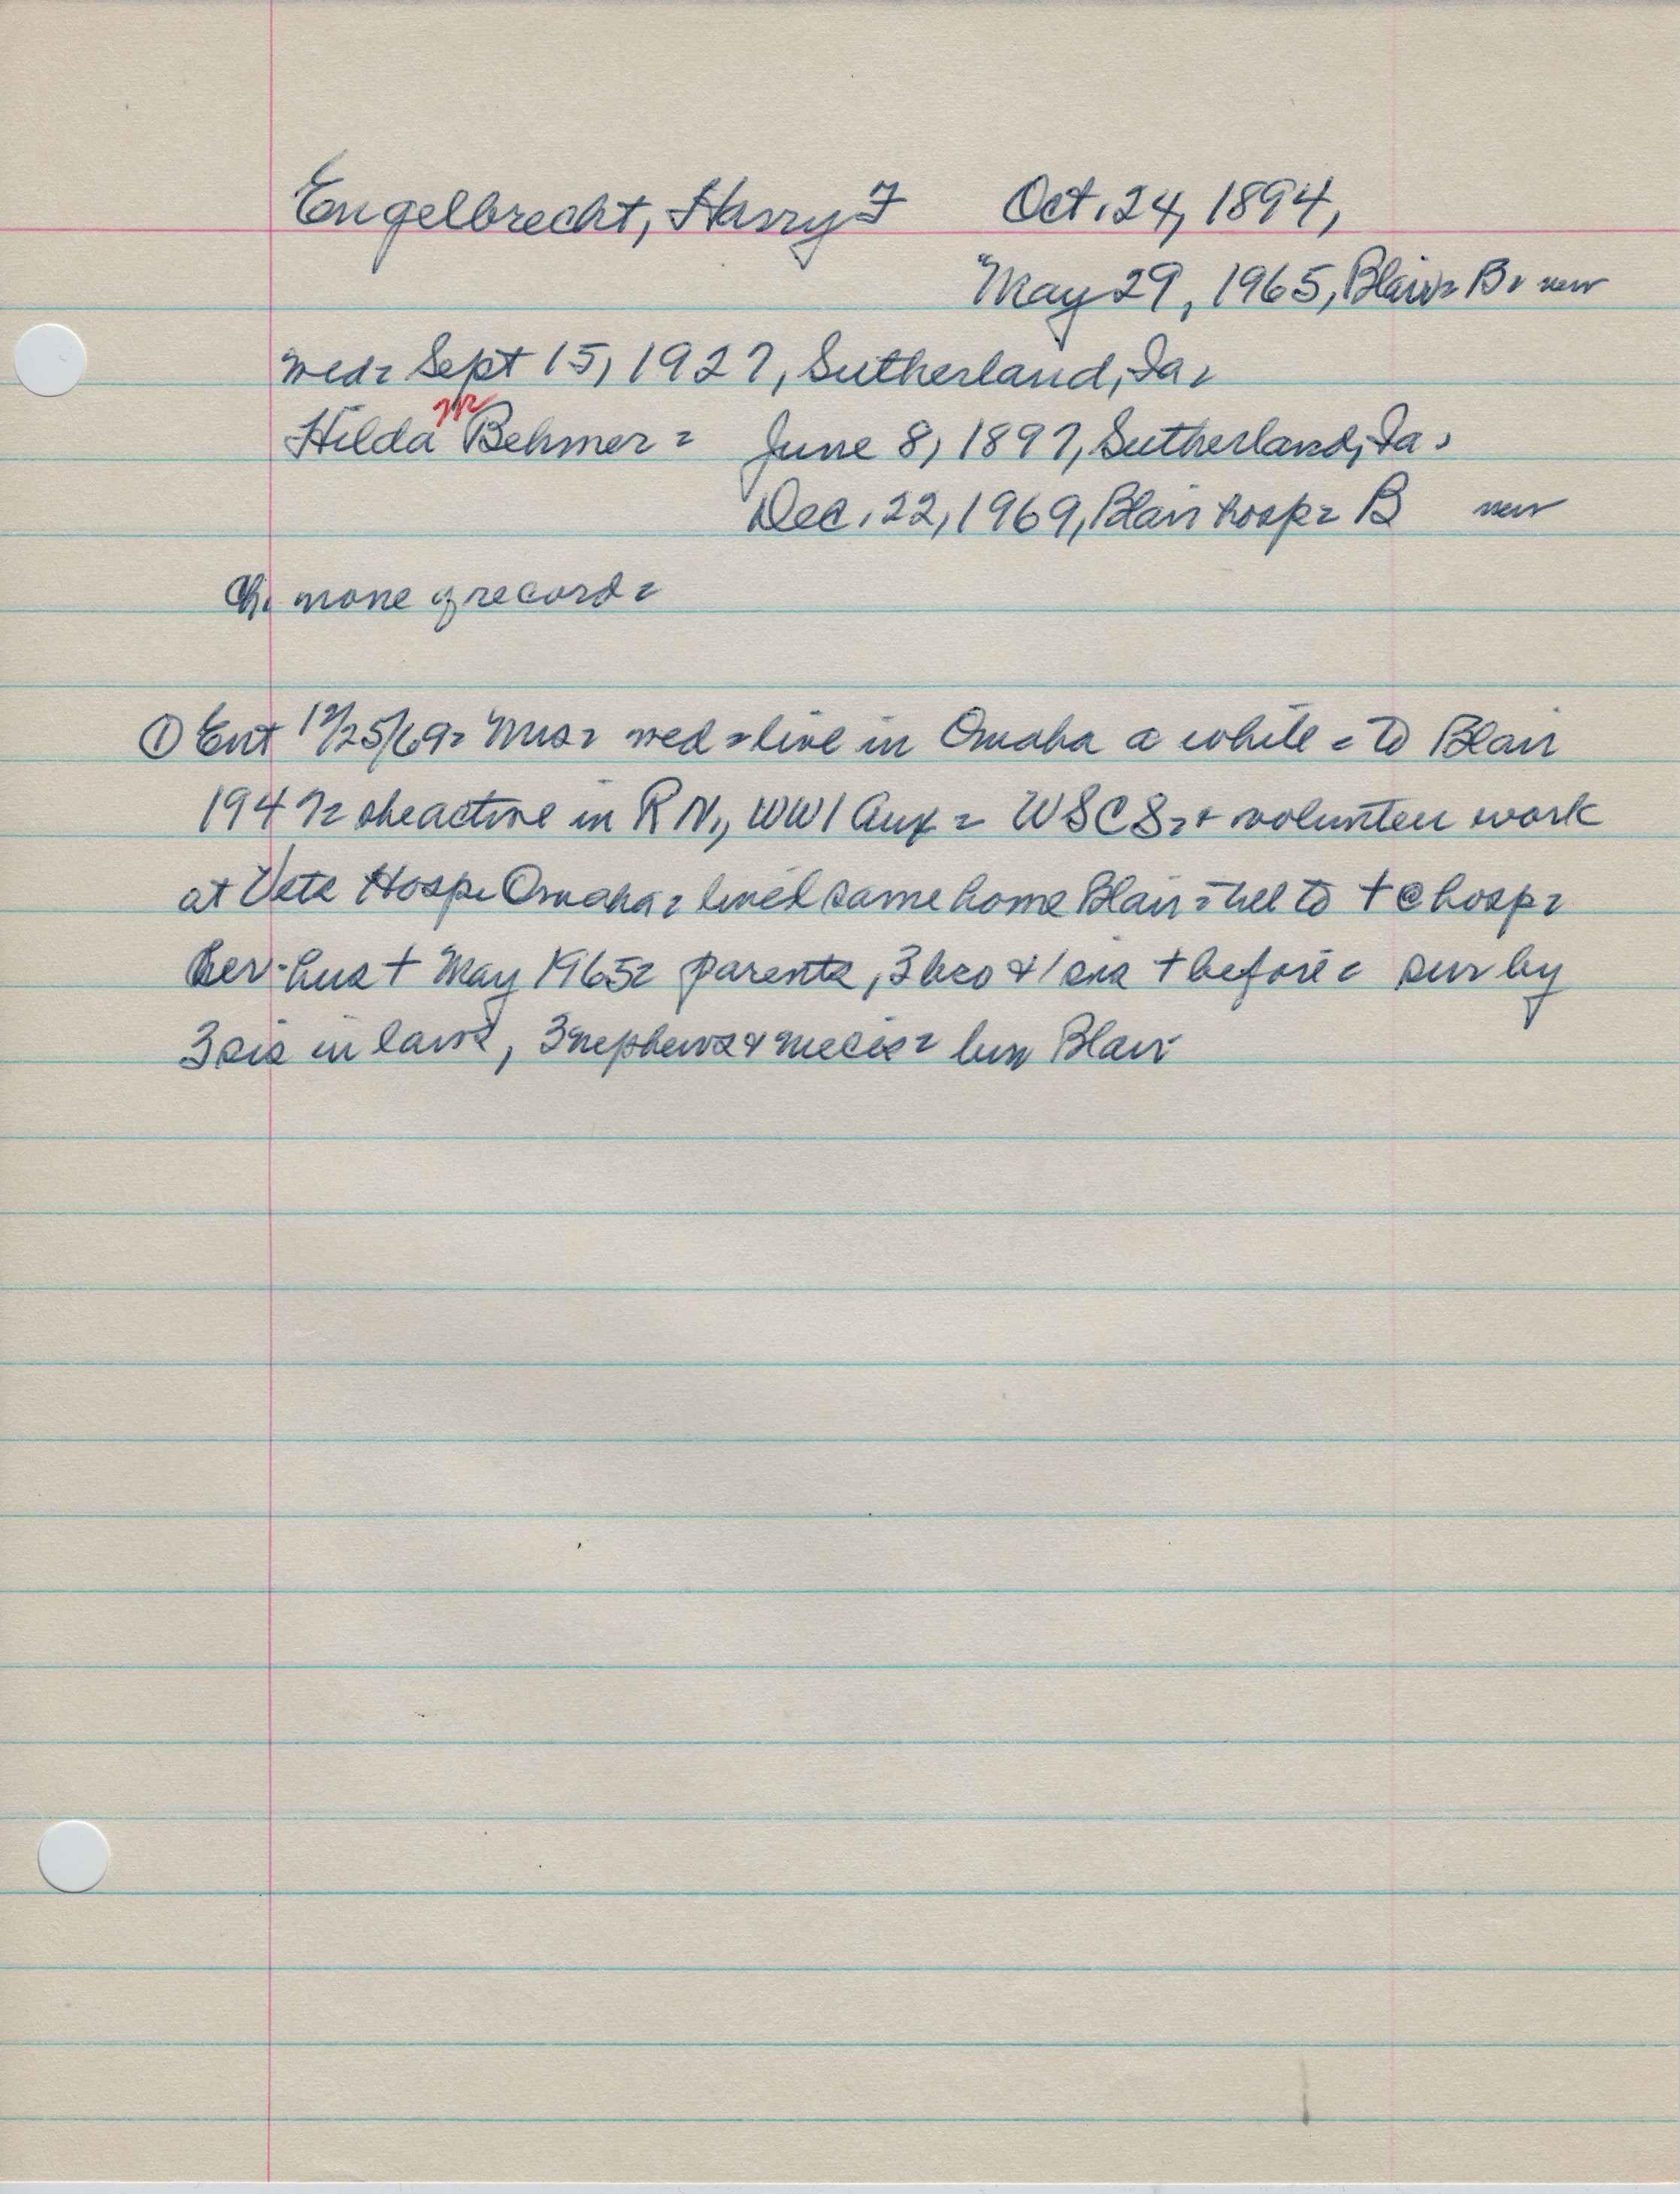 Engelbrecht, Harry F Oct. 24, 1894,
May 29, 1965, Blair = B =
wed = Sept 15, 1927, Sutherland, Ia =
Hilda Behmer = June 8, 1897, Sutherland, Ia =
Dec. 22, 1969, Blair hosp = B
Ch. none of record =
① Ent 12/25/69 = Mrs = wed = live in Omaha a while = to Blair
1947 = she active in RN, WW1 Aux = WSCS = + volunteer work
at Vets Hosp = Omaha = lived same home Blair = till to + @ hosp =
hus + May 1965 = parents, 3 bro & 1 sis + before = sur by
3 sis in laws, 3 nephews & nieces = bur Blair